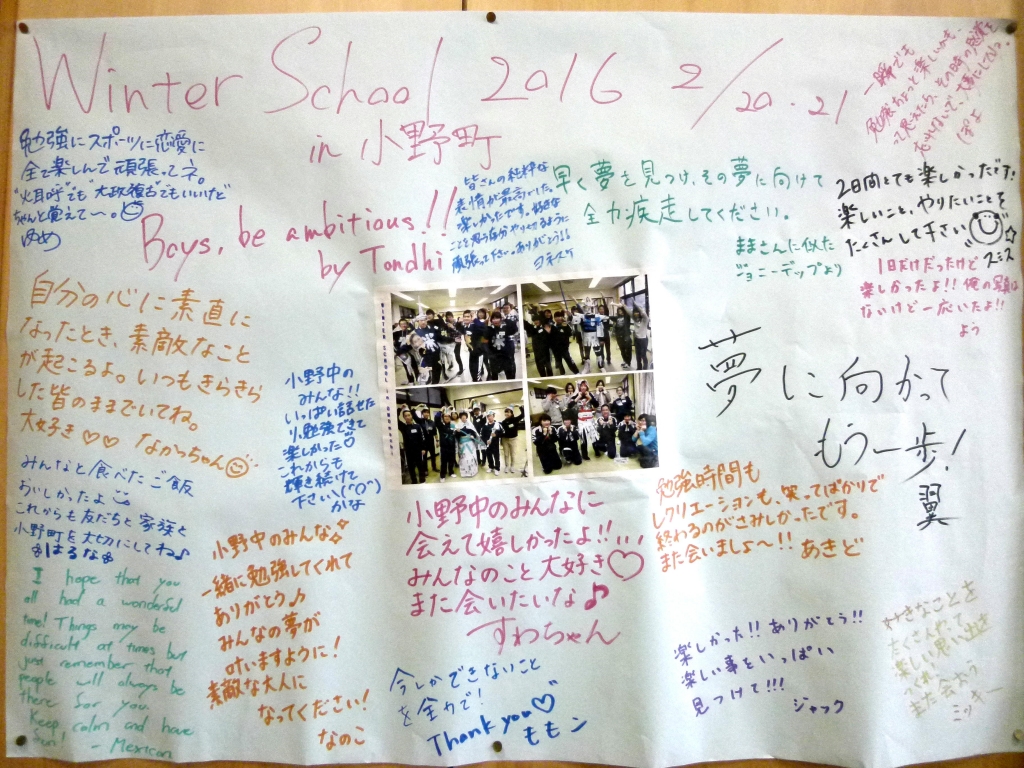 Winter School 2016 2/20.21
in 小野町
一瞬でも
勉強ちょっと楽しいかも、
って思えたら、その時の感覚を
忘れないで、大切にしてね。
ぽよ
勉強にスポーツに恋愛に
全て楽しんで頑張ってネ。
ちゃんと覚えて〜。
ゆめ
Boys, be ambitious!!
by Tondhi
皆さんの純粋な
表情が最高でした。
楽しかったです。好きな
ことを思う存分やりきるように
頑張って下さい。ありがとう!!
ヨネスケ
早く夢を見つけ、その夢に向けて
全力疾走してください。
ままさんに似た
ジョニーデップより
2日間とても楽しかったです!
楽しいこと、やりたいことを
たくさんして下さい
スミス
1日だけだったけど
楽しかったよ!! 俺の写真は
ないけど一応いたよ!!
よう
自分の心に素直に
なったとき、素敵なこと
が起こるよ。いつもきらきら
した皆のままでいてね。
大好き♡♡ なかっちゃん
小野中の
みんな!!
いっぱい話せた
り勉強できて
楽しかった♡
これからも
輝き続けて
下さい\(^O^)
かな
夢に向かって
もう一歩!
翼
みんなと食べたご飯
おいしかったよ
これからも友だちと家族と
小野町を大切にしてね♪
はるな
小野中のみんな
一緒に勉強してくれて
ありがとう♪
みんなの夢が
叶いますように!
素敵な大人に
なってください!
なのこ
小野中のみんなに
会えて嬉しかったよ!!...
みんなのこと大好き♡
また会いたいな♪
すわちゃん
勉強時間も
レクリエーションも、笑ってばかりで
終わるのがさみしかったです。
また会いましょ〜!! あきど
I hope that you
all had a wonderful
time! Things may be
difficult at times but
just remember that
people will always be
there for you.
Keep calm and have
fun! - Mexican
今しかできないこと
を全力で!
Thank you♡
ももン
楽しかった!! ありがとう!!
楽しい事をいっぱい
見つけて!!!
ジャック
すきなことを
たくさんやって
楽しい思い出を
つくれ!
また会おう
ミッキー